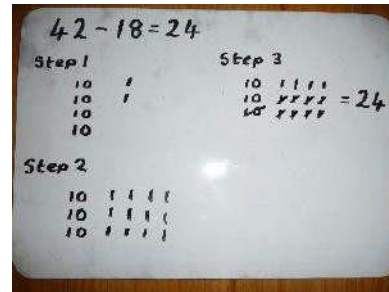 42 - 18 = 24
Step 1
10 I
10 I
10
10
Step 2
10 I I I I
10 I I I I
10 I I I I
Step 3
10 I I I I
10 I I I I = 24
10 I I I I